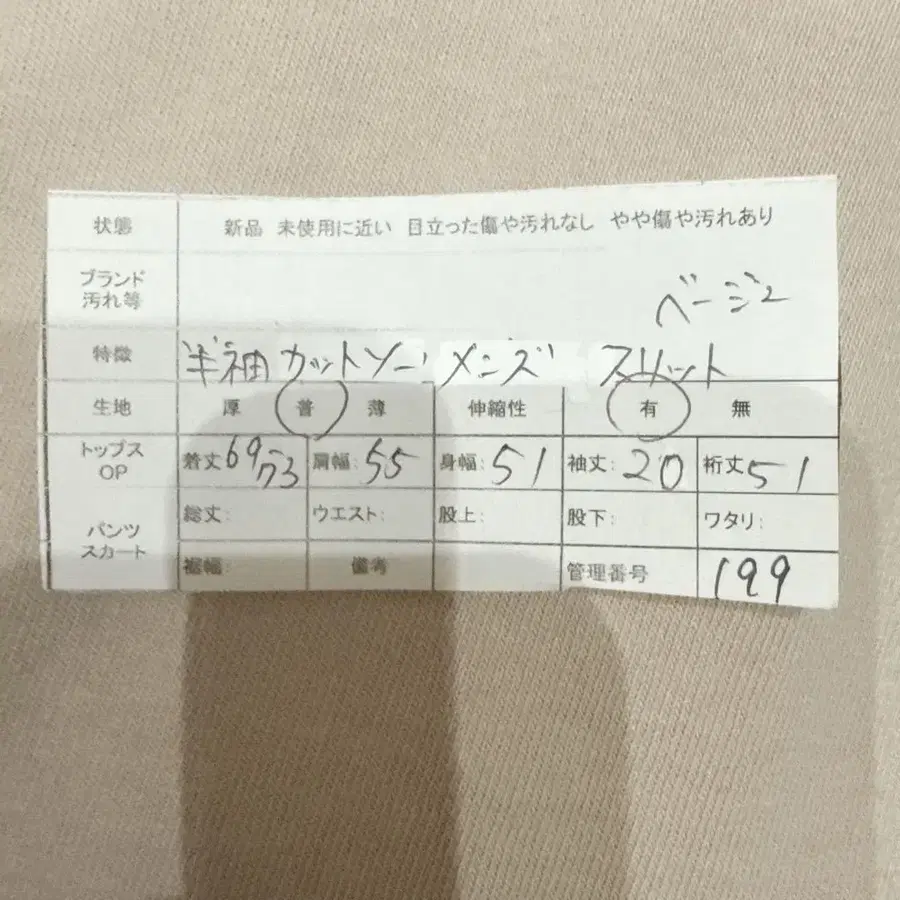 状態 新品 未使用に近い 目立った傷や汚れなし やや傷や汚れあり
ブランド
汚れ等 ベージュ
特徴 半袖カットソー メンズ スリット
生地 厚 普 薄 伸縮性 有 無
トップス
OP 着丈69/73 肩幅:55 身幅:51 袖丈:20 裄丈51
パンツ
スカート 総丈: ウエスト: 股上: 股下: ワタリ:
裾幅: 備考 管理番号 199